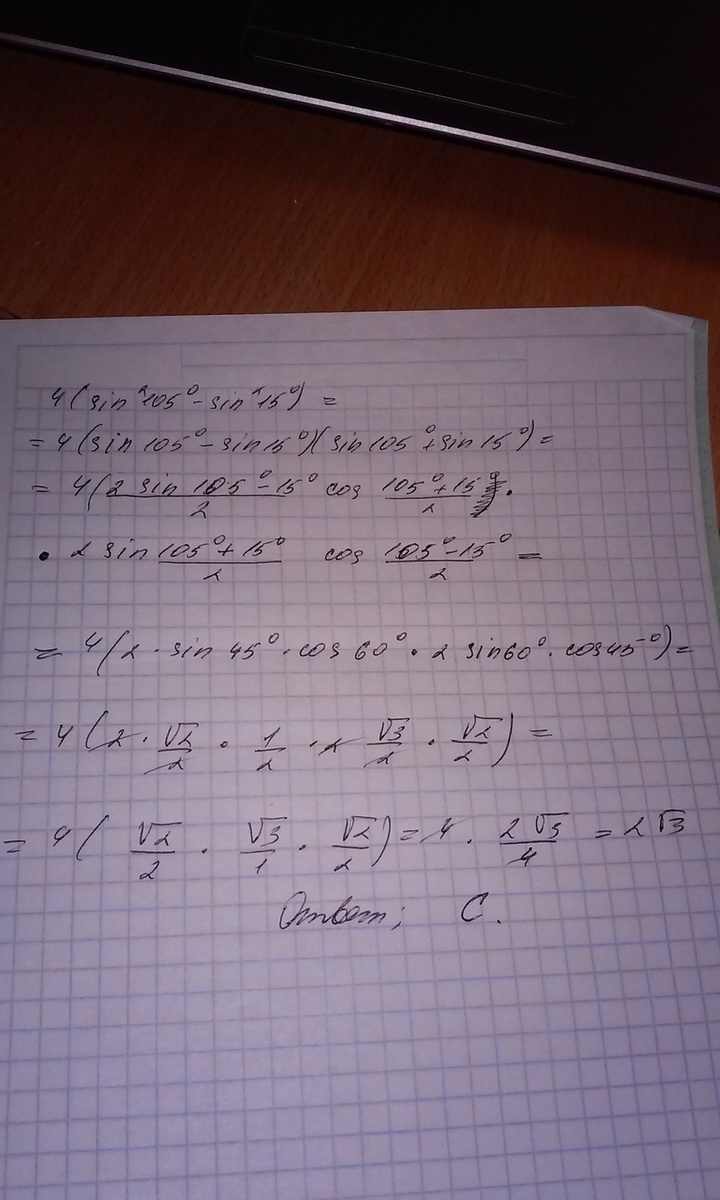 4(sin²105° - sin²15°) =
= 4(sin 105° - sin15°)(sin105° + sin 15°) =
= 4(2 sin 105° - 15°/2 cos 105° + 15°/2 ·
· 2 sin 105° + 15°/2 cos 105° - 15°/2 =
= 4(2 · sin 45° · cos 60° · 2 sin60° · cos45°) =
= 4(2 · √2/2 · 1/2 · 2 √3/2 · √2/2) =
= 4( √2/2 · √3/1 · √2/2) = 4 · 2√3/4 = 2√3
Ответ; C.